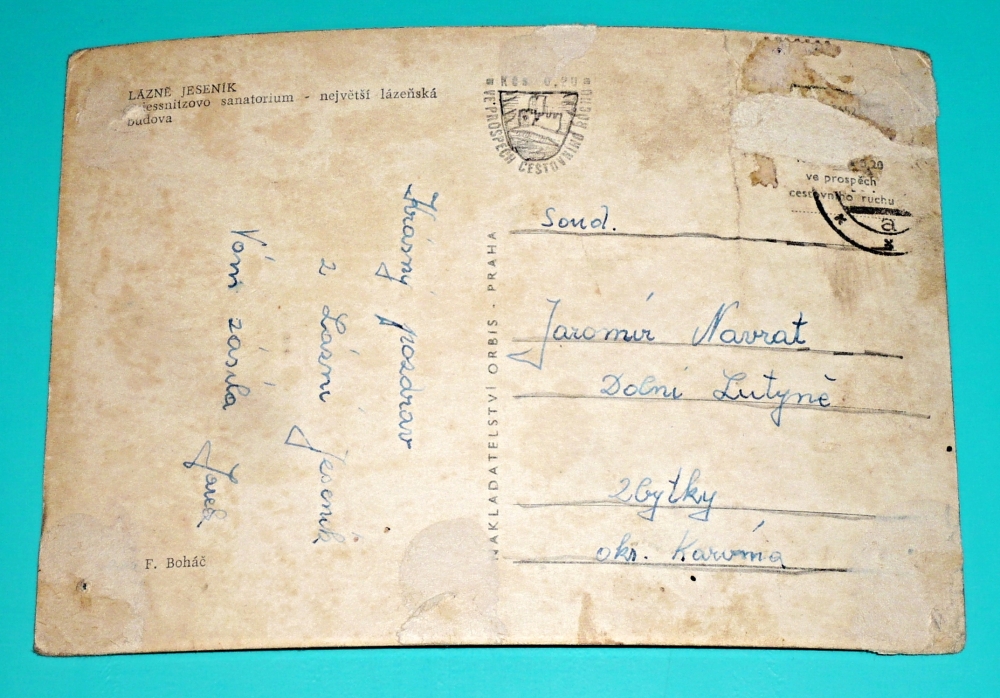 LÁZNĚ JESENÍK
iessnitzovo sanatorium - největší lázeňská
budova
Krásný pozdrav
z Lázní Jeseník
Vám zasílá
Jarek
F. Boháč
NAKLADATELSTVÍ ORBIS · PRAHA
Kčs 0,20
VE PROSPĚCH CESTOVNÍHO RUCHU
0,20
ve prospěch
cestovního ruchu
a
Soud.
Jaromír Navrat
Dolní Lutyně
Zbytky
okr. Karviná